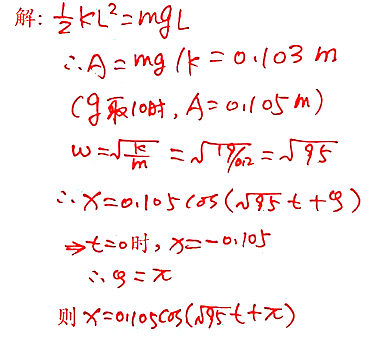 解: ½kL²=mgL
∴A=mg/k=0.103 m
(g取10时, A=0.105m)
ω=√(k/m) =√(19/0.2)=√95
∴x=0.105cos(√95t+φ)
⇒t=0时, x=-0.105
∴φ=π
则 x=0.105cos(√95t+π)